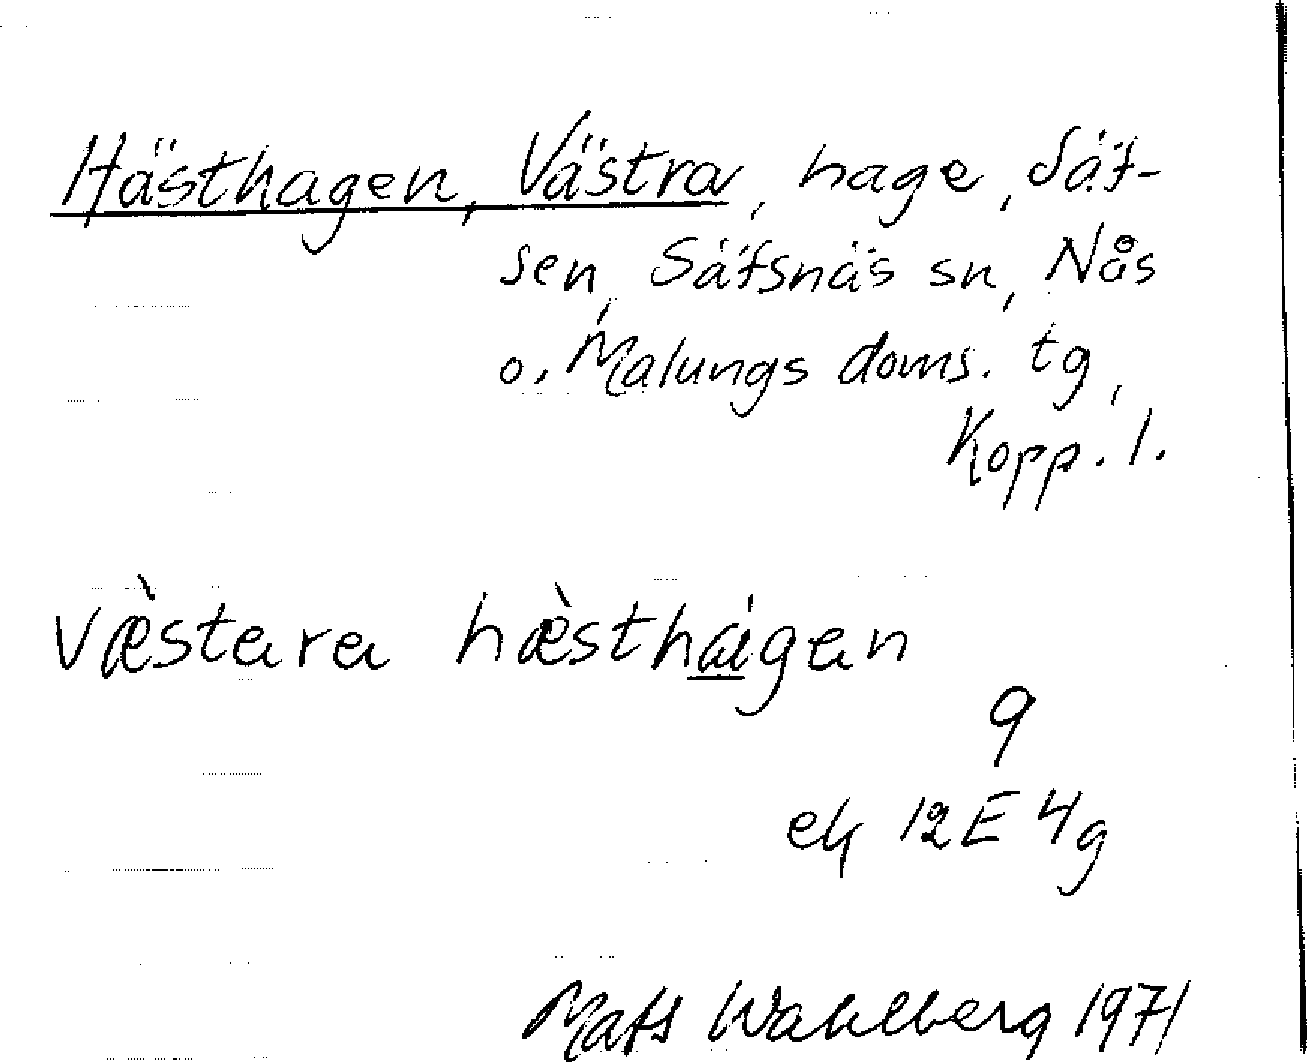 Hästhagen, Västra, hage, Säf-
sen, Säfsnäs sn, Nås
o. Malungs doms. tg,
Kopp. l.
væ̀stara hæ̀sthágan
9
ek 12E 4g
Mats Wahlberg 1971